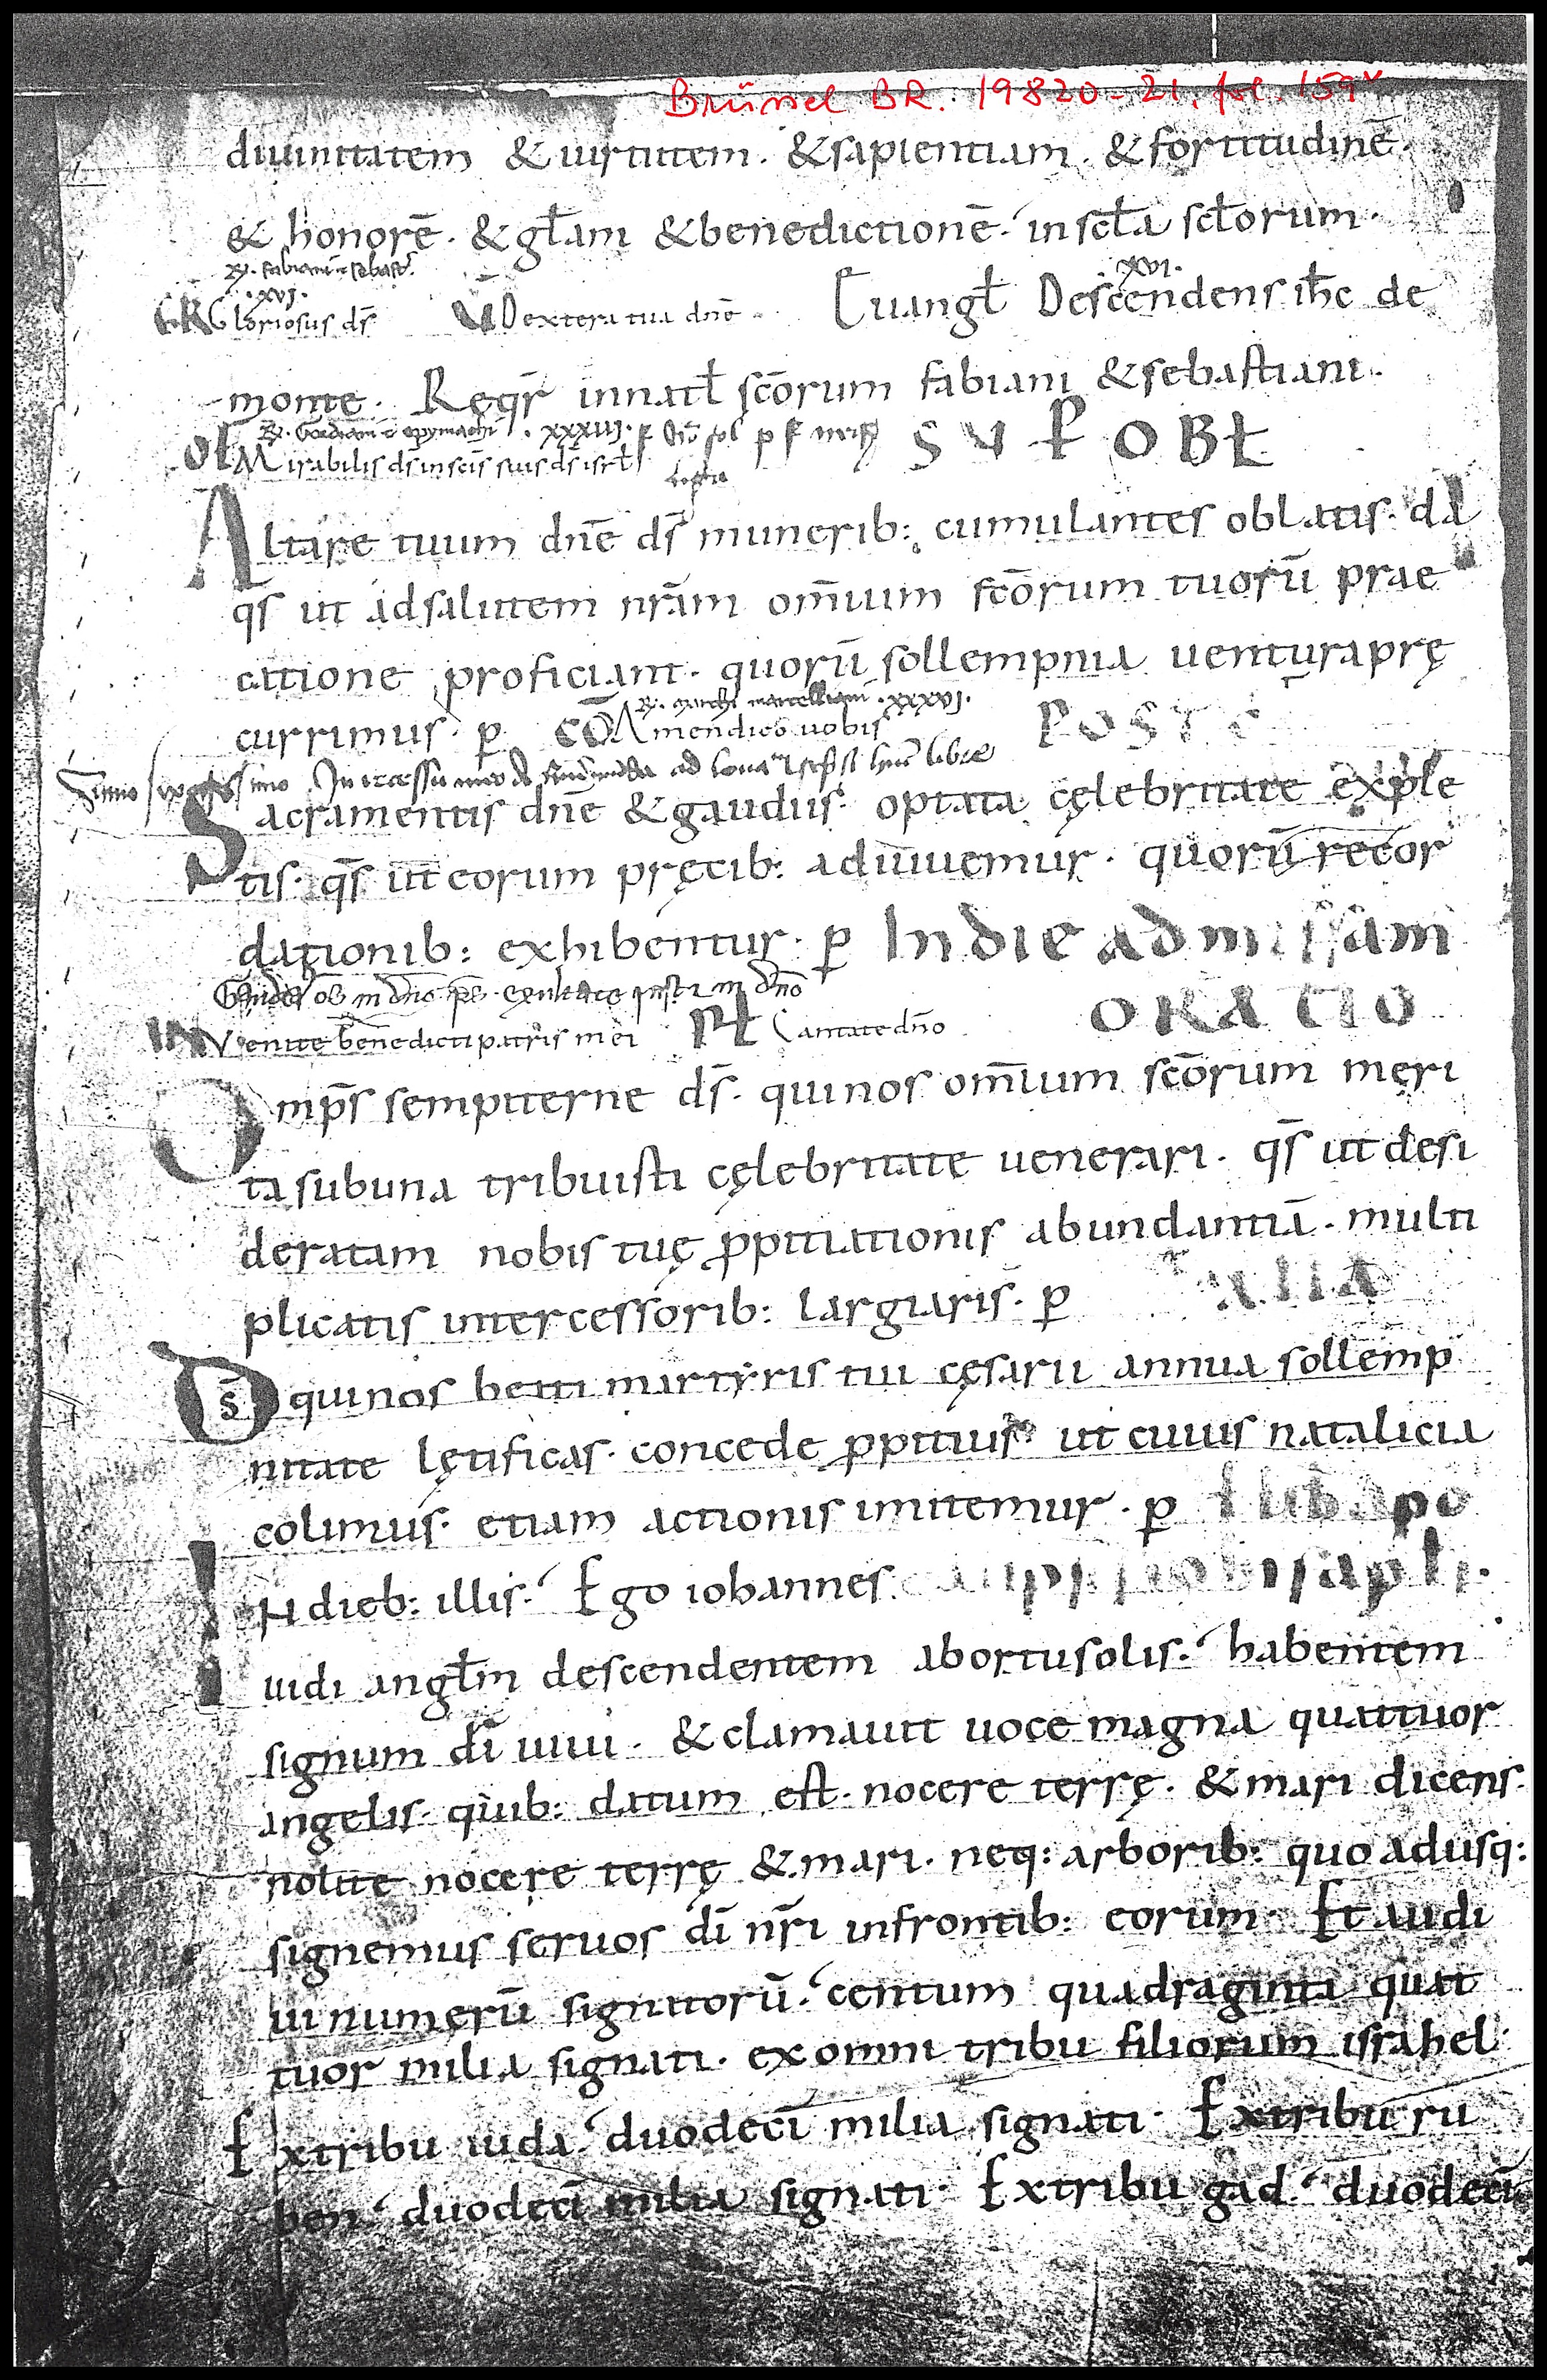 Brüssel BR. 19820-21. fol. 159v
diuinitatem & uirtutem. & sapientiam. & fortitudinē.
& honorē. & gƚam & benedictionē. in scƚa scƚorum.
R. fabiani & sebast.
.xvj. xvi.
GR Gloriosus dš V Dextera tua dnē Euangƚ Descendens ihc de
monte. Reqr innatƚ scōrum fabiani & sebastiani.
R. Gordiani & epymachi .xxxiij.
OF Mirabilis dš in scīs suis dš isrƚ SUP OBƚ
Altare tuum dnē dš munerib: cumulantes oblatis. da
qš ut ad salutem nrām omīum scōrum tuorū prae
catione proficiant. quorū sollempnia uentura prę
currimus. p COM R. marchi marcelliani .xxxvj.
Amen dico uobis POST C
Sacramentis dnē & gaudiis. optata cęlebritate exple
tis. qš ut eorum pręcib: adiuuemur. quorū recor
dationib: exhibentur. p In die ad missam
Gaudeam oš in dnō exultate iusti in dnō
IN Venite benedicti patris mei PSƚ Cantate dnō ORATIO
Ompš sempiterne dš. qui nos omīum scōrum męri
ta sub una tribuisti cęlebritate uenerari. qš ut desi
deratam nobis tuę ppitiationis abundantiā. multi
plicatis intercessorib: largiaris. p ALIA
Dš qui nos beati martyris tui cęsarii annua sollemp
nitate lętificas. concede ppitius. ut cuius natalicia
colimus. etiam actionis imitemur. p Ƚ lib apo
IN dieb: illis. Ego iohannes
uidi angƚm descendentem ab ortu solis. habentem
signum dī uiui. & clamauit uoce magna quattuor
angelis. quib: datum est. nocere terrę. & mari dicens.
nolite nocere terrę & mari. neq: arborib: quo adusq:
signemus seruos dī nrī in frontib: eorum. Et audi
ui numerū signatorū. centum quadraginta quat
tuor milia signati. ex omni tribu filiorum israhel.
Ex tribu iuda. duodecī milia signati. Ex tribu ru
ben. duodecī milia signati. Ex tribu gad. duodecī